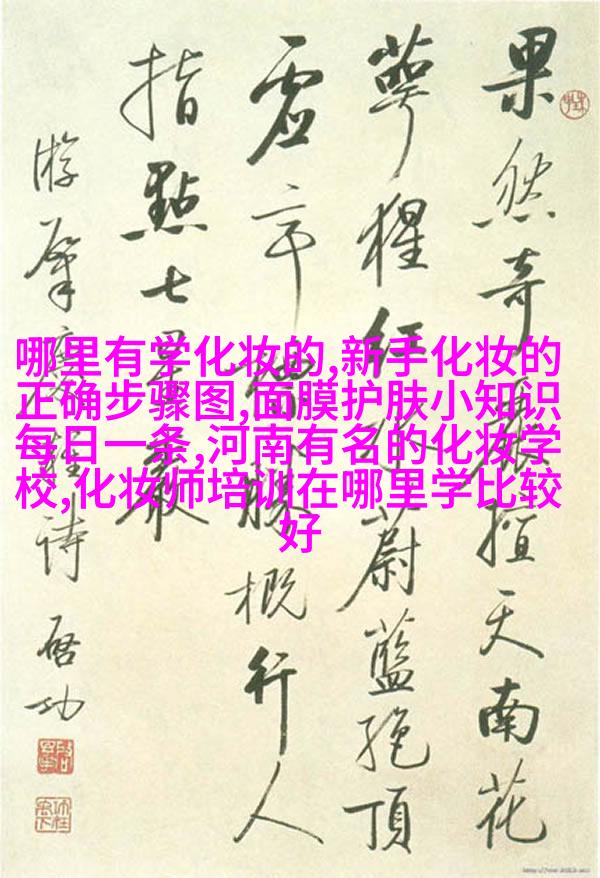 哪里有学化妆的,新手化妆的
正确步骤图,面膜护肤小知识
每日一条,河南有名的化妆学
校,化妆师培训在哪里学比较
好
果然奇麗擅天南花
萼猩红蔚藍絕頂
虚亭勝概行人
指點七星巖
游肇慶雜詩
啓功